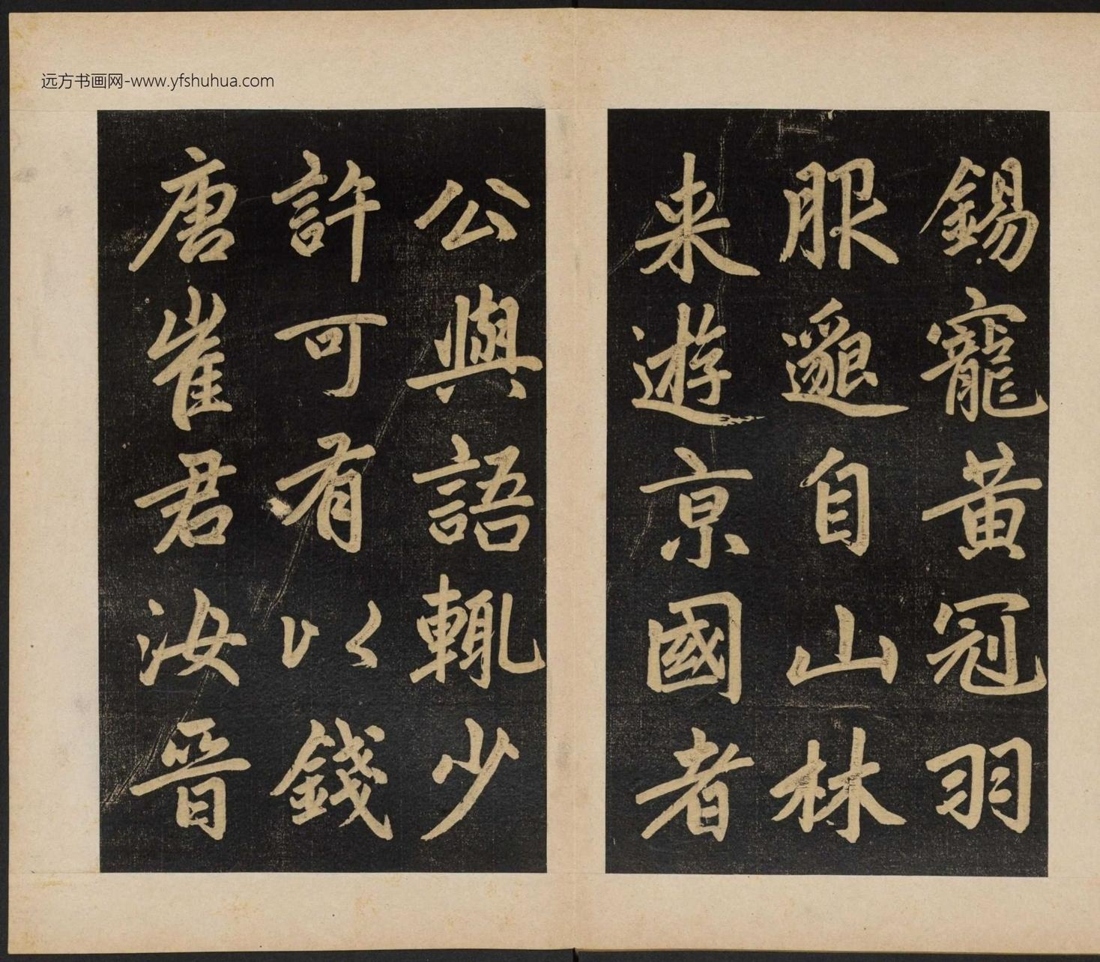 远方书画网-www.yfshuhua.com
錫寵黃冠羽
服邈自山林
来遊京國者
公與語輒少
許可有以錢
唐崔君汝晋